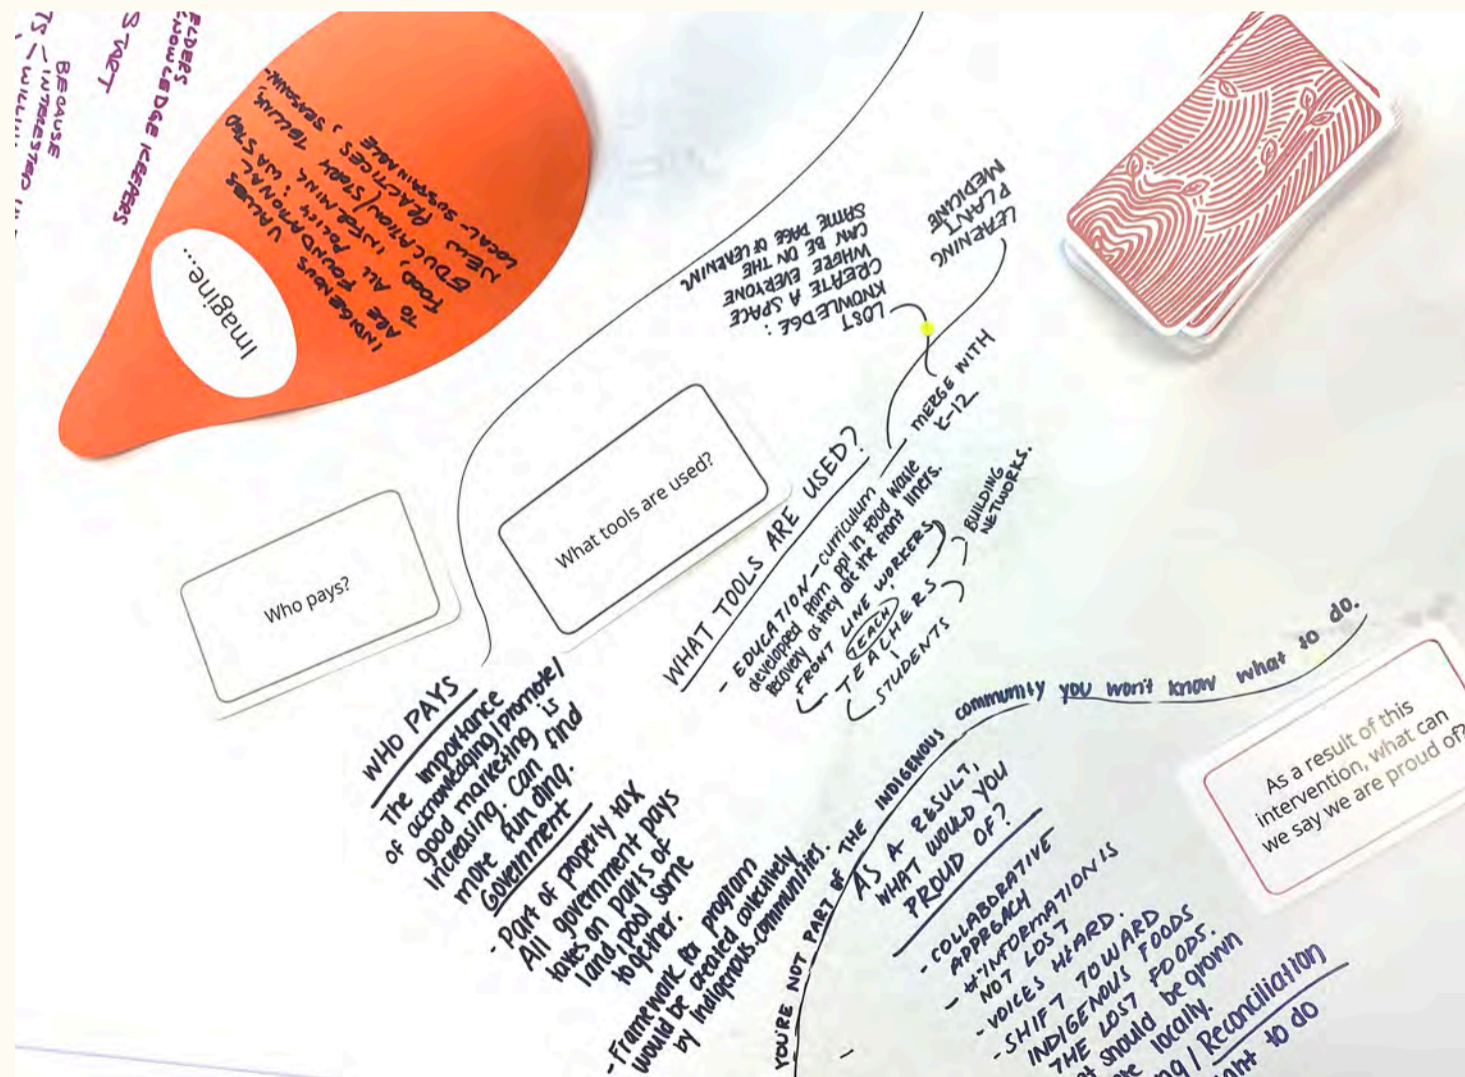 ELDERS
KNOWLEDGE KEEPERS
START
BECAUSE
INTERESTED
Imagine...
INDIGENOUS VALUES
ARE FOUNDATIONAL
TO ALL POLICY:
FOOD, INFORMING WASTED
EDUCATION/STORY TELLING,
NEW PRACTICES,
LOCAL- SUSTAINABLE, SEASONAL-
LEARNING
PLANT
MEDICINE
LOST
KNOWLEDGE:
CREATE A SPACE
WHERE EVERYONE
CAN BE ON THE
SAME PAGE OF LEARNING
MERGE WITH
K-12
Who pays?
What tools are used?
WHAT TOOLS ARE USED?
- EDUCATION - curriculum
developed from ppl in food waste
recovery as they are the front liners.
FRONT LINE WORKERS
TEACH
TEACHERS
STUDENTS
BUILDING
NETWORKS.
WHO PAYS
The importance
of acknowledging/promote/
good marketing is
increasing. Can find
more funding.
Government
- Part of property tax
All government pays
taxes on parts of
land, pool some
together.
- Framework for program
would be created collectively
by Indigenous communities.
YOU'RE NOT PART OF THE INDIGENOUS community you won't know what to do.
As a result of this
intervention, what can
we say we are proud of?
AS A RESULT,
WHAT WOULD YOU
PROUD OF?
- COLLABORATIVE
APPROACH
- INFORMATION IS
NOT LOST
- VOICES HEARD.
- SHIFT TOWARD
INDIGENOUS FOODS
THE LOST FOODS.
should be grown
locally.
/ Reconciliation
to do